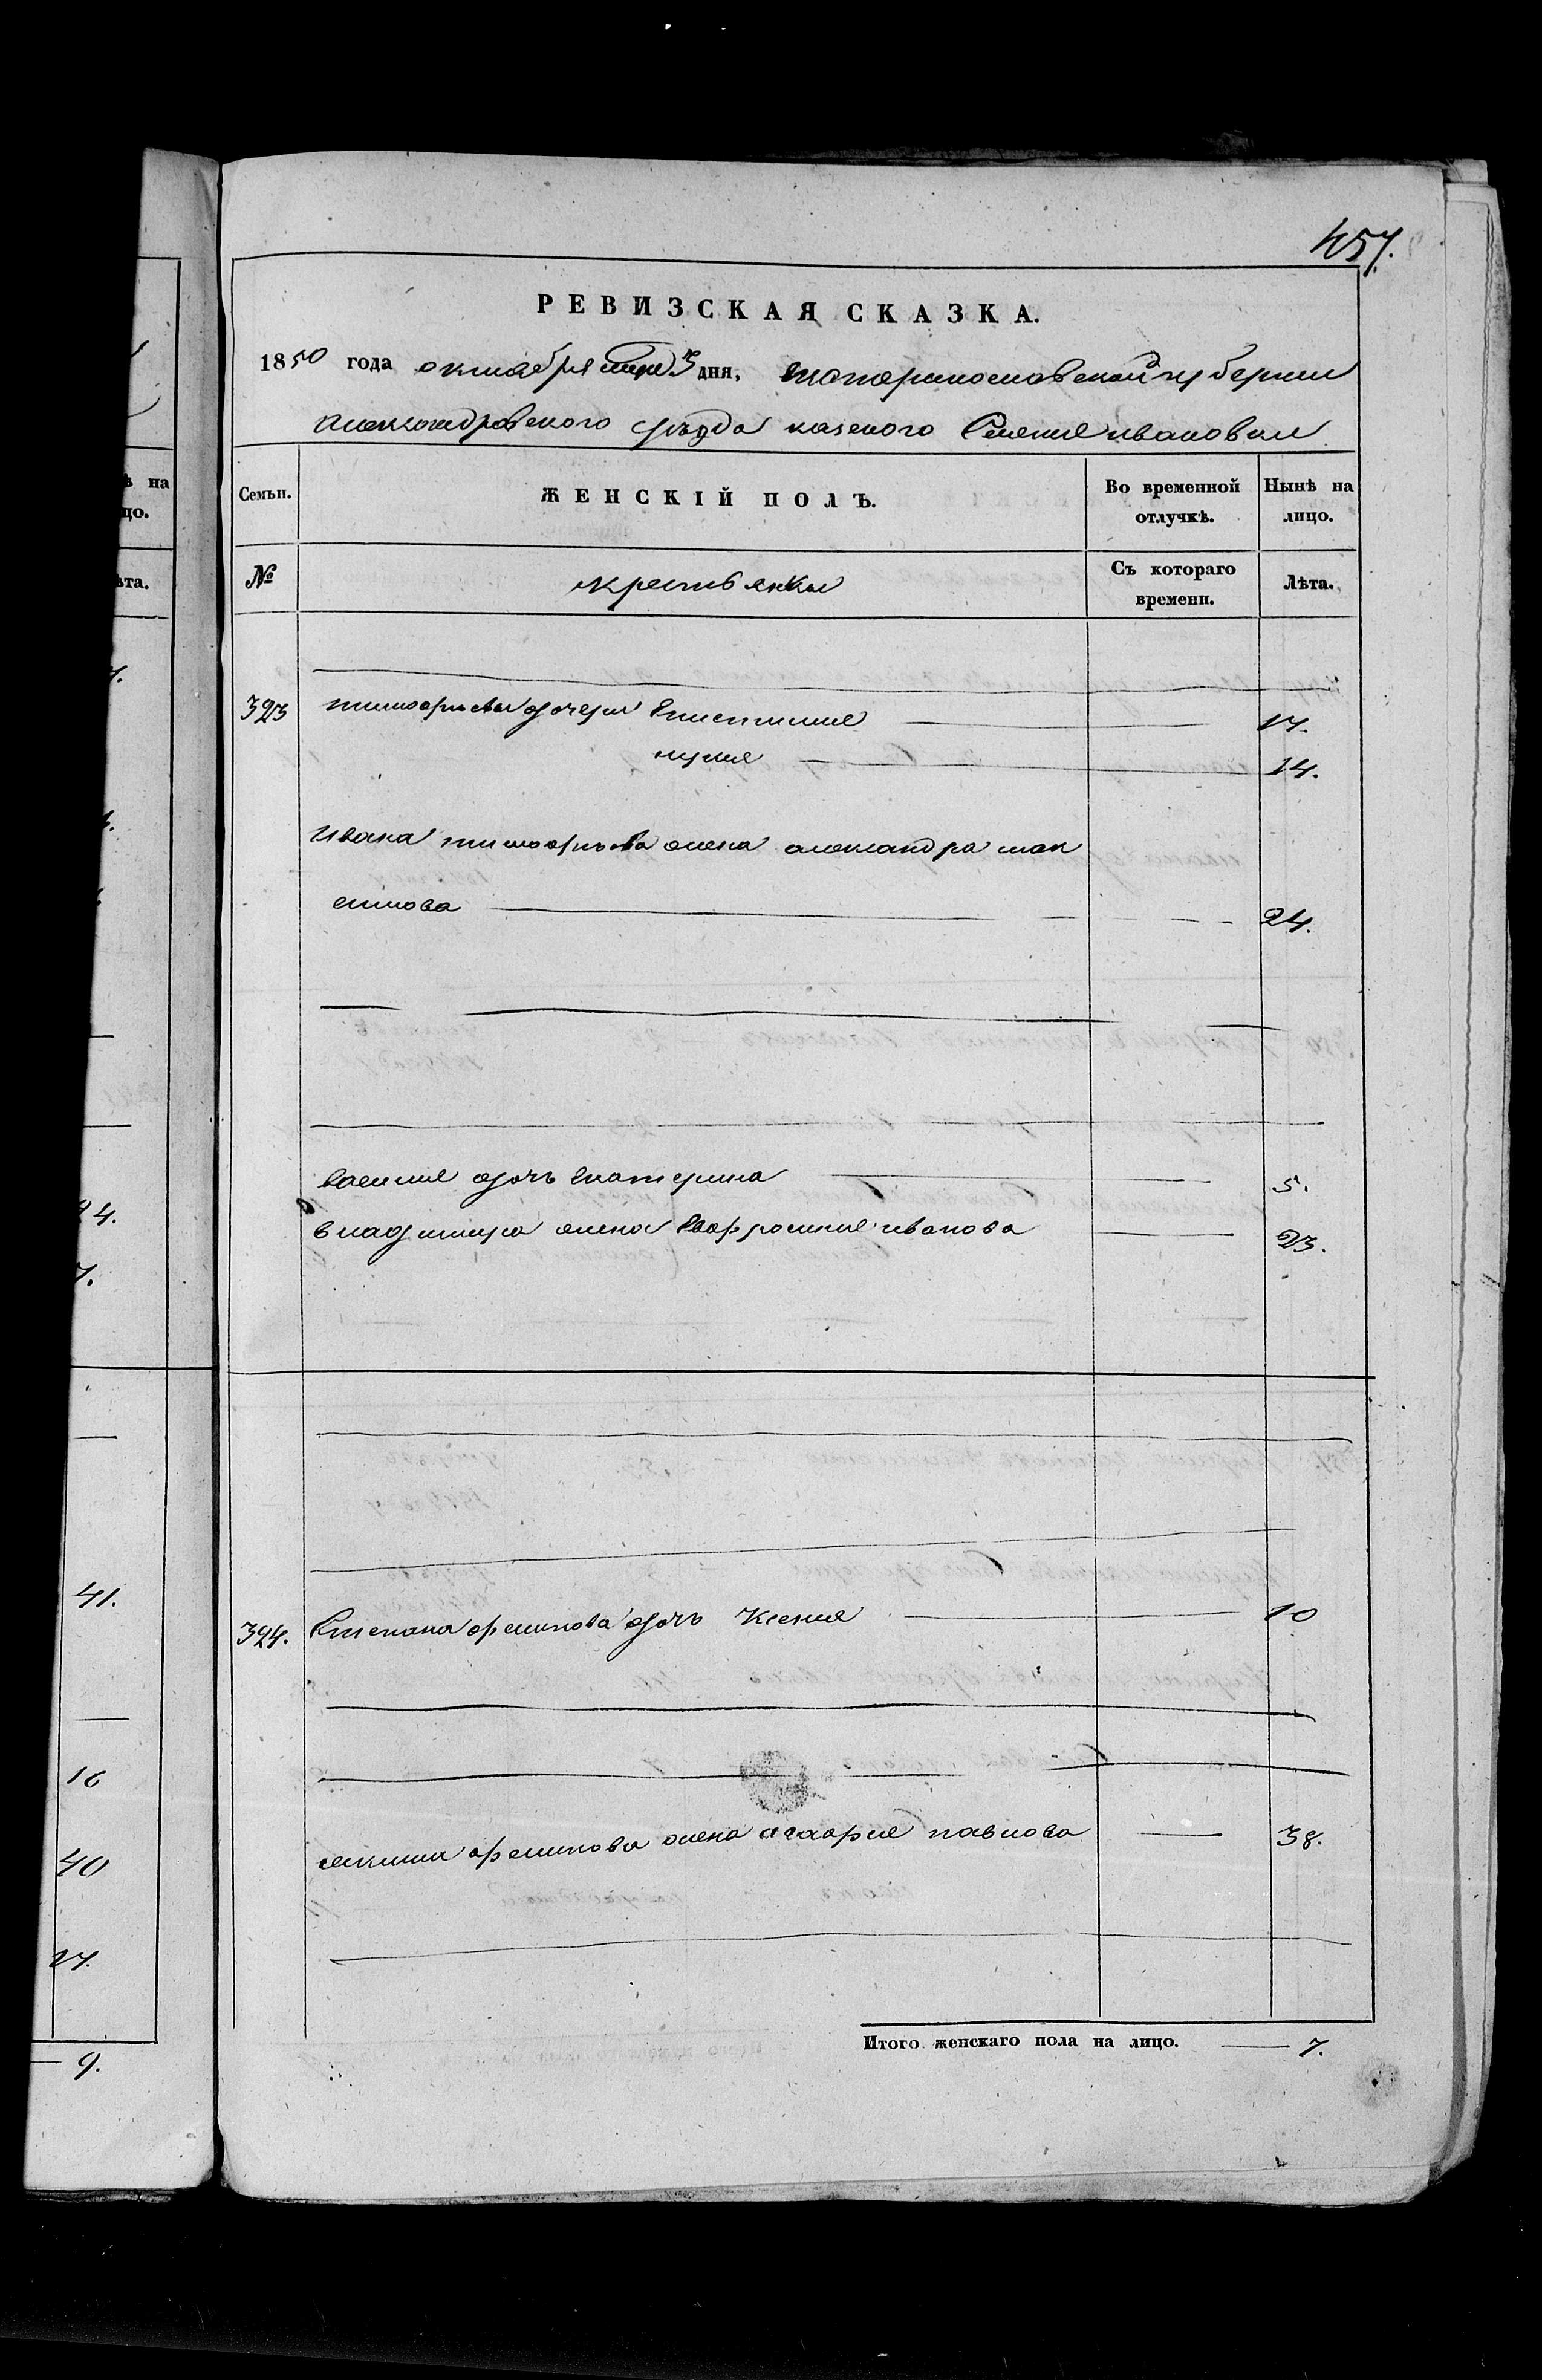 457.
РЕВИЗСКАЯ СКАЗКА.
1850 года октября 3 дня, екатеринославской губернии
александровского уезда казеного Селения ивановки
Семьи. ЖЕНСКІЙ ПОЛЪ. Во временной отлучкѣ. Нынѣ на лицо.
№ крестьянки Съ котораго времени. Лѣта.
323 тимофеевы дочери Епистимия 17.
14.
Ивана тимофеева жена александра мак
симова 24.
василия дочь екатерина 5.
владимира жена Евфросиния иванова 23.
324. Степана ефимова дочь Ксения 10
ефимова жена агафия павлова 38.
Итого женскаго пола на лицо. 7.
ѣ на
цо.
ѣта.
41.
16
40
17.
9.